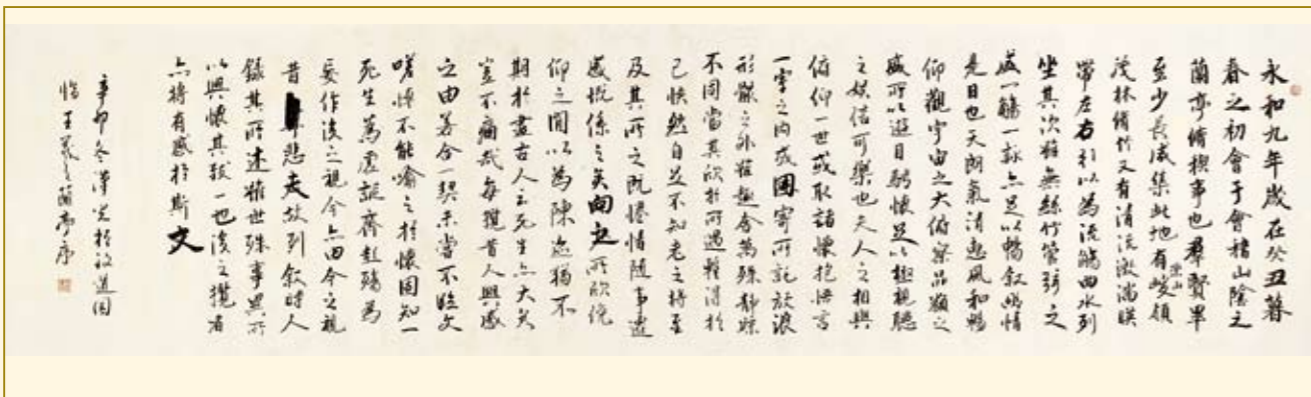 永和九年歲在癸丑暮
春之初會于會稽山陰之
蘭亭脩稧事也羣賢畢
至少長咸集此地有崇山峻領
茂林脩竹又有清流激湍暎
帶左右引以為流觴曲水列
坐其次雖無絲竹管弦之
盛一觴一詠亦足以暢敘幽情
是日也天朗氣清惠風和暢
仰觀宇宙之大俯察品類之
盛所以遊目騁懷足以極視聽
之娛信可樂也夫人之相與
俯仰一世或取諸懷抱悟言
一室之內或因寄所託放浪
形骸之外雖趣舍萬殊靜躁
不同當其欣於所遇蹔得於
己怏然自足不知老之將至
及其所之既惓情隨事遷
感慨係之矣向之所欣俛
仰之間以為陳迹猶不
期於盡古人云死生亦大矣
豈不痛哉每攬昔人興感
之由若合一契未嘗不臨文
嗟悼不能喻之於懷固知一
死生為虛誕齊彭殤為
妄作後之視今亦由今之視
昔悲夫故列敘時人
錄其所述雖世殊事異所
以興懷其致一也後之攬者
亦將有感於斯文
辛卯冬漢光於
臨王羲之蘭亭序